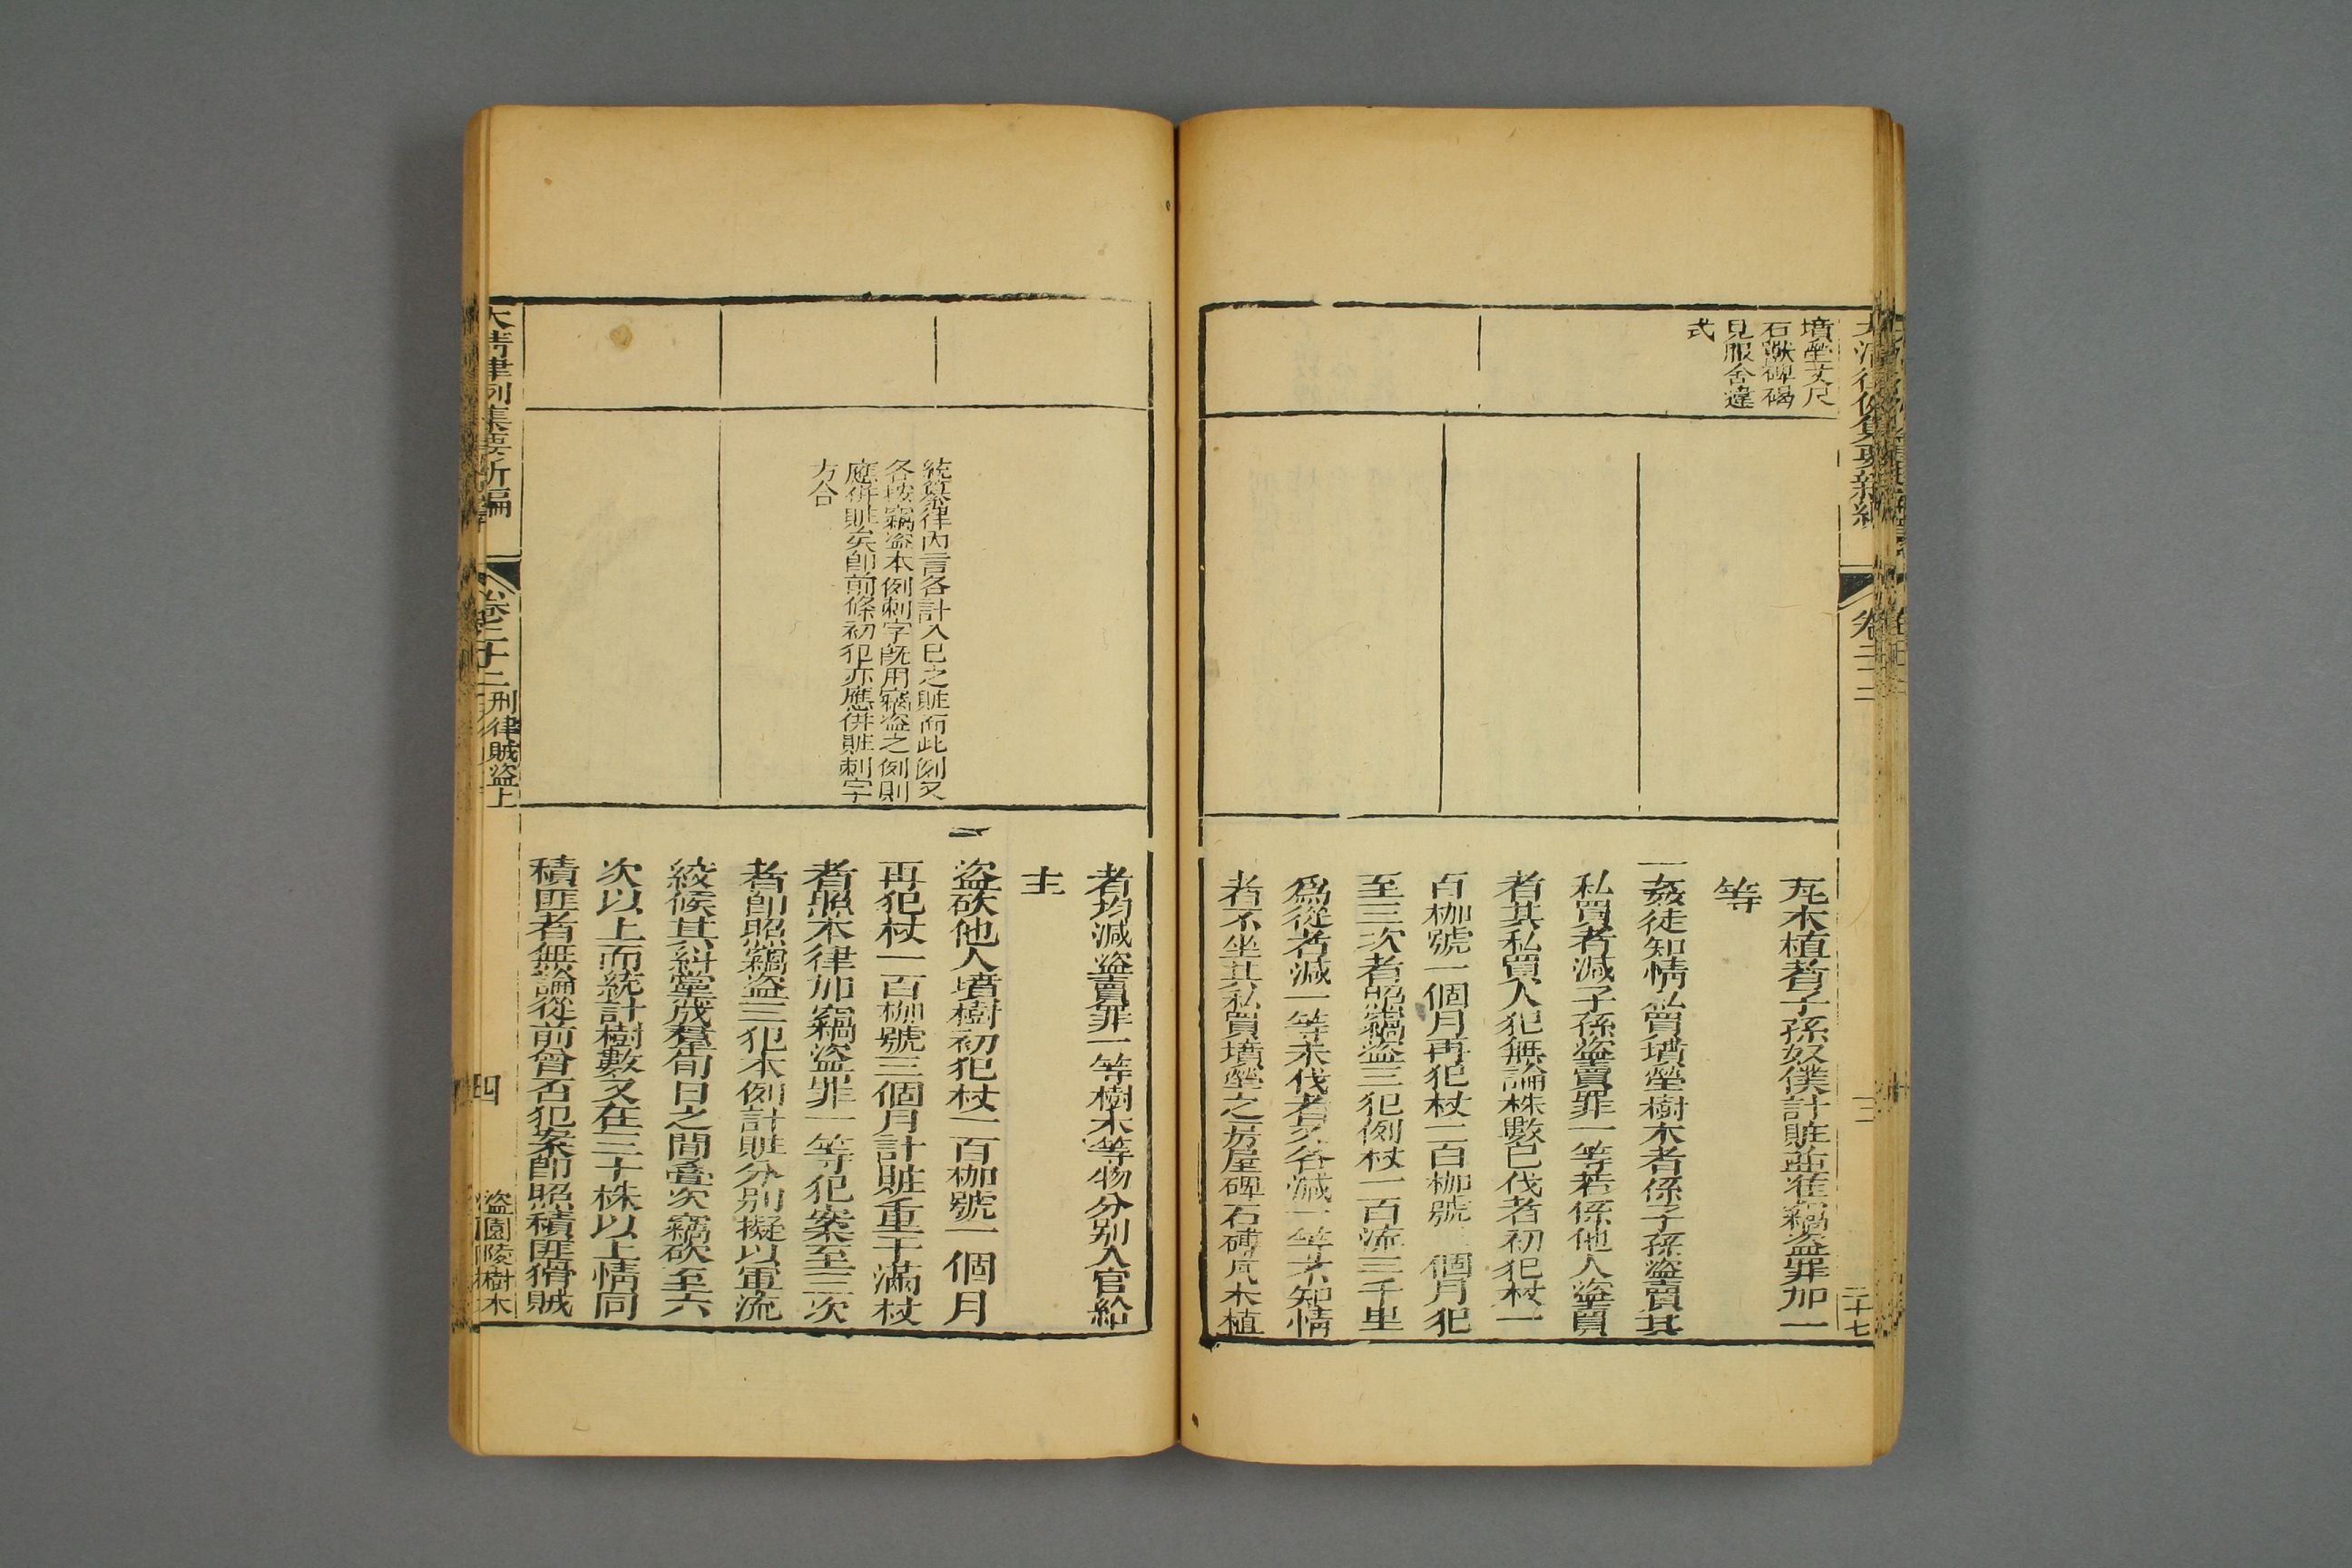 墳塋丈尺
石獸碑碣
見服舍違
式
瓦木植者子孫奴僕計賍並准竊盜罪加一
等
一姦徒知情私買墳塋樹木者係子孫盜賣其
私買者減子孫盜賣罪一等若係他人盜賣
者其私買人犯無論株數已伐者初犯杖一
百枷號一個月再犯杖一百枷號 個月犯
至三次者照竊盜三犯例杖一百流三千里
爲從者減一等未伐者又各減一等不知情
者不坐其私買墳塋之房屋碑石磚瓦木植
卷二十二
三十七
統算条律內言各計入己之賍而此例又
各按竊盜本例刺字既用竊盜之例則
應併賍矣即前條初犯亦應併賍刺字
方合
者均減盜賣罪一等樹木等物分別入官給
主
一盜砍他人墳樹初犯杖一百枷號一個月
再犯杖一百枷號三個月計賍重于滿杖
者照本律加竊盜罪一等犯案至三次
者卽照竊盜三犯本例計賍分別擬以軍流
絞候其糾黨成羣旬日之間疊次竊砍至六
次以上而統計樹數又在三十株以上情同
積匪者無論從前曾否犯案卽照積匪猾賊
大清律例集要新編
卷二十二
刑律賊盜上
四
盜園陵樹木